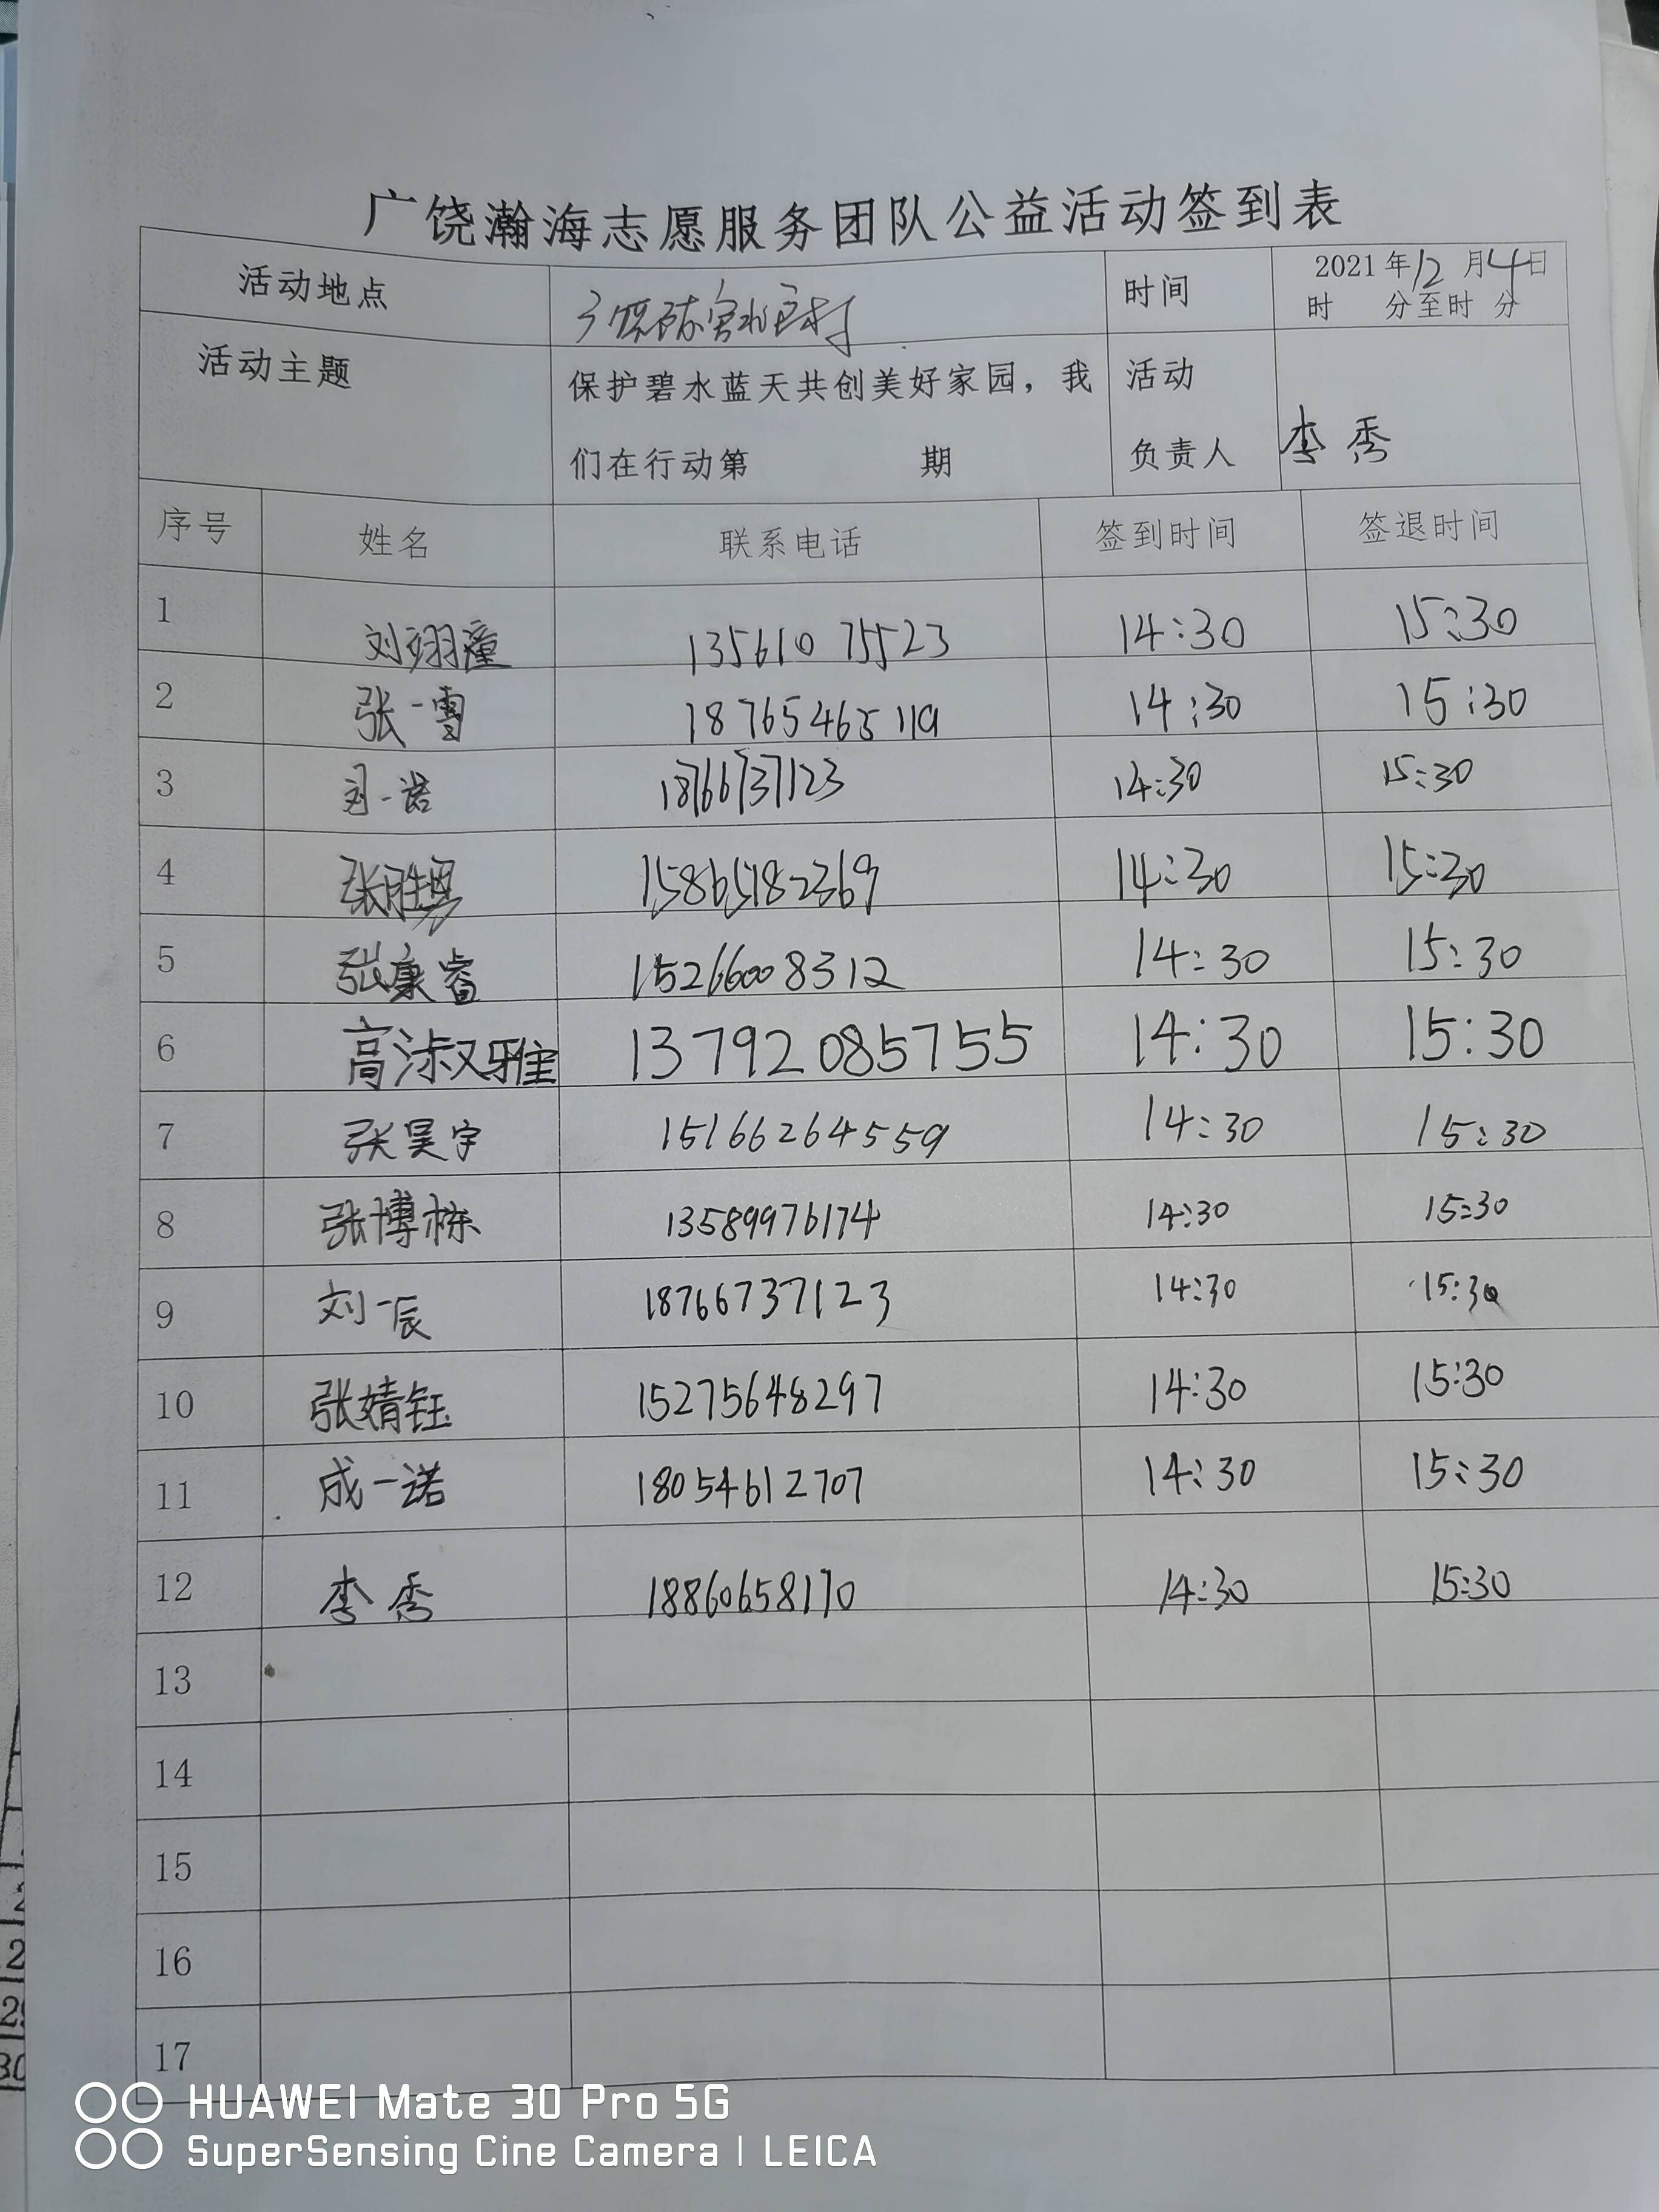 广饶瀚海志愿服务团队公益活动签到表
活动地点 时间 2021年12月4日
时 分至时 分
活动主题 保护碧水蓝天共创美好家园，我 活动
们在行动第 期 负责人 李秀
序号 姓名 联系电话 签到时间 签退时间
1 刘翊潼 13561075523 14:30 15:30
2 张一雪 18765465119 14:30 15:30
3 刘一诺 18766737123 14:30 15:30
4 15865182369 14:30 15:30
5 张康睿 15266008312 14:30 15:30
6 13792085755 14:30 15:30
7 张昊宇 15166264559 14:30 15:30
8 张博栋 13589976174 14:30 15:30
9 刘一辰 18766737123 14:30 15:30
10 张婧钰 15275648297 14:30 15:30
11 成一诺 18054612707 14:30 15:30
12 李秀 18860658170 14:30 15:30
13
14
15
16
17
HUAWEI Mate 30 Pro 5G
SuperSensing Cine Camera | LEICA